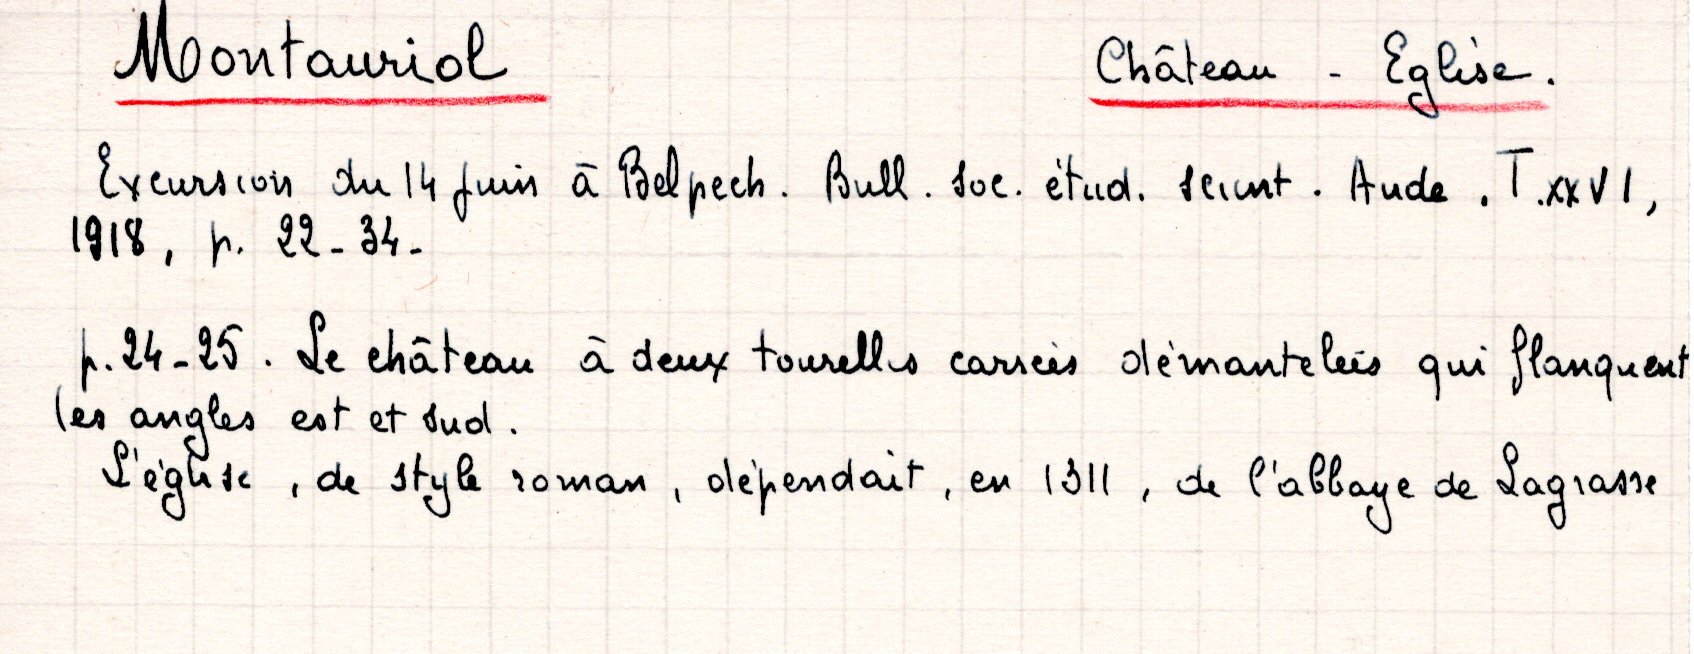 Montauriol Château - Eglise.
Excursion du 14 juin à Belpech. Bull. soc. étud. scient. Aude. T.XXVI,
1918, p. 22-34-
p.24-25. Le château à deux tourelles carrées démantelées qui flanquent
les angles est et sud.
L'église, de style roman, dépendait, en 1311, de l'abbaye de Lagrasse